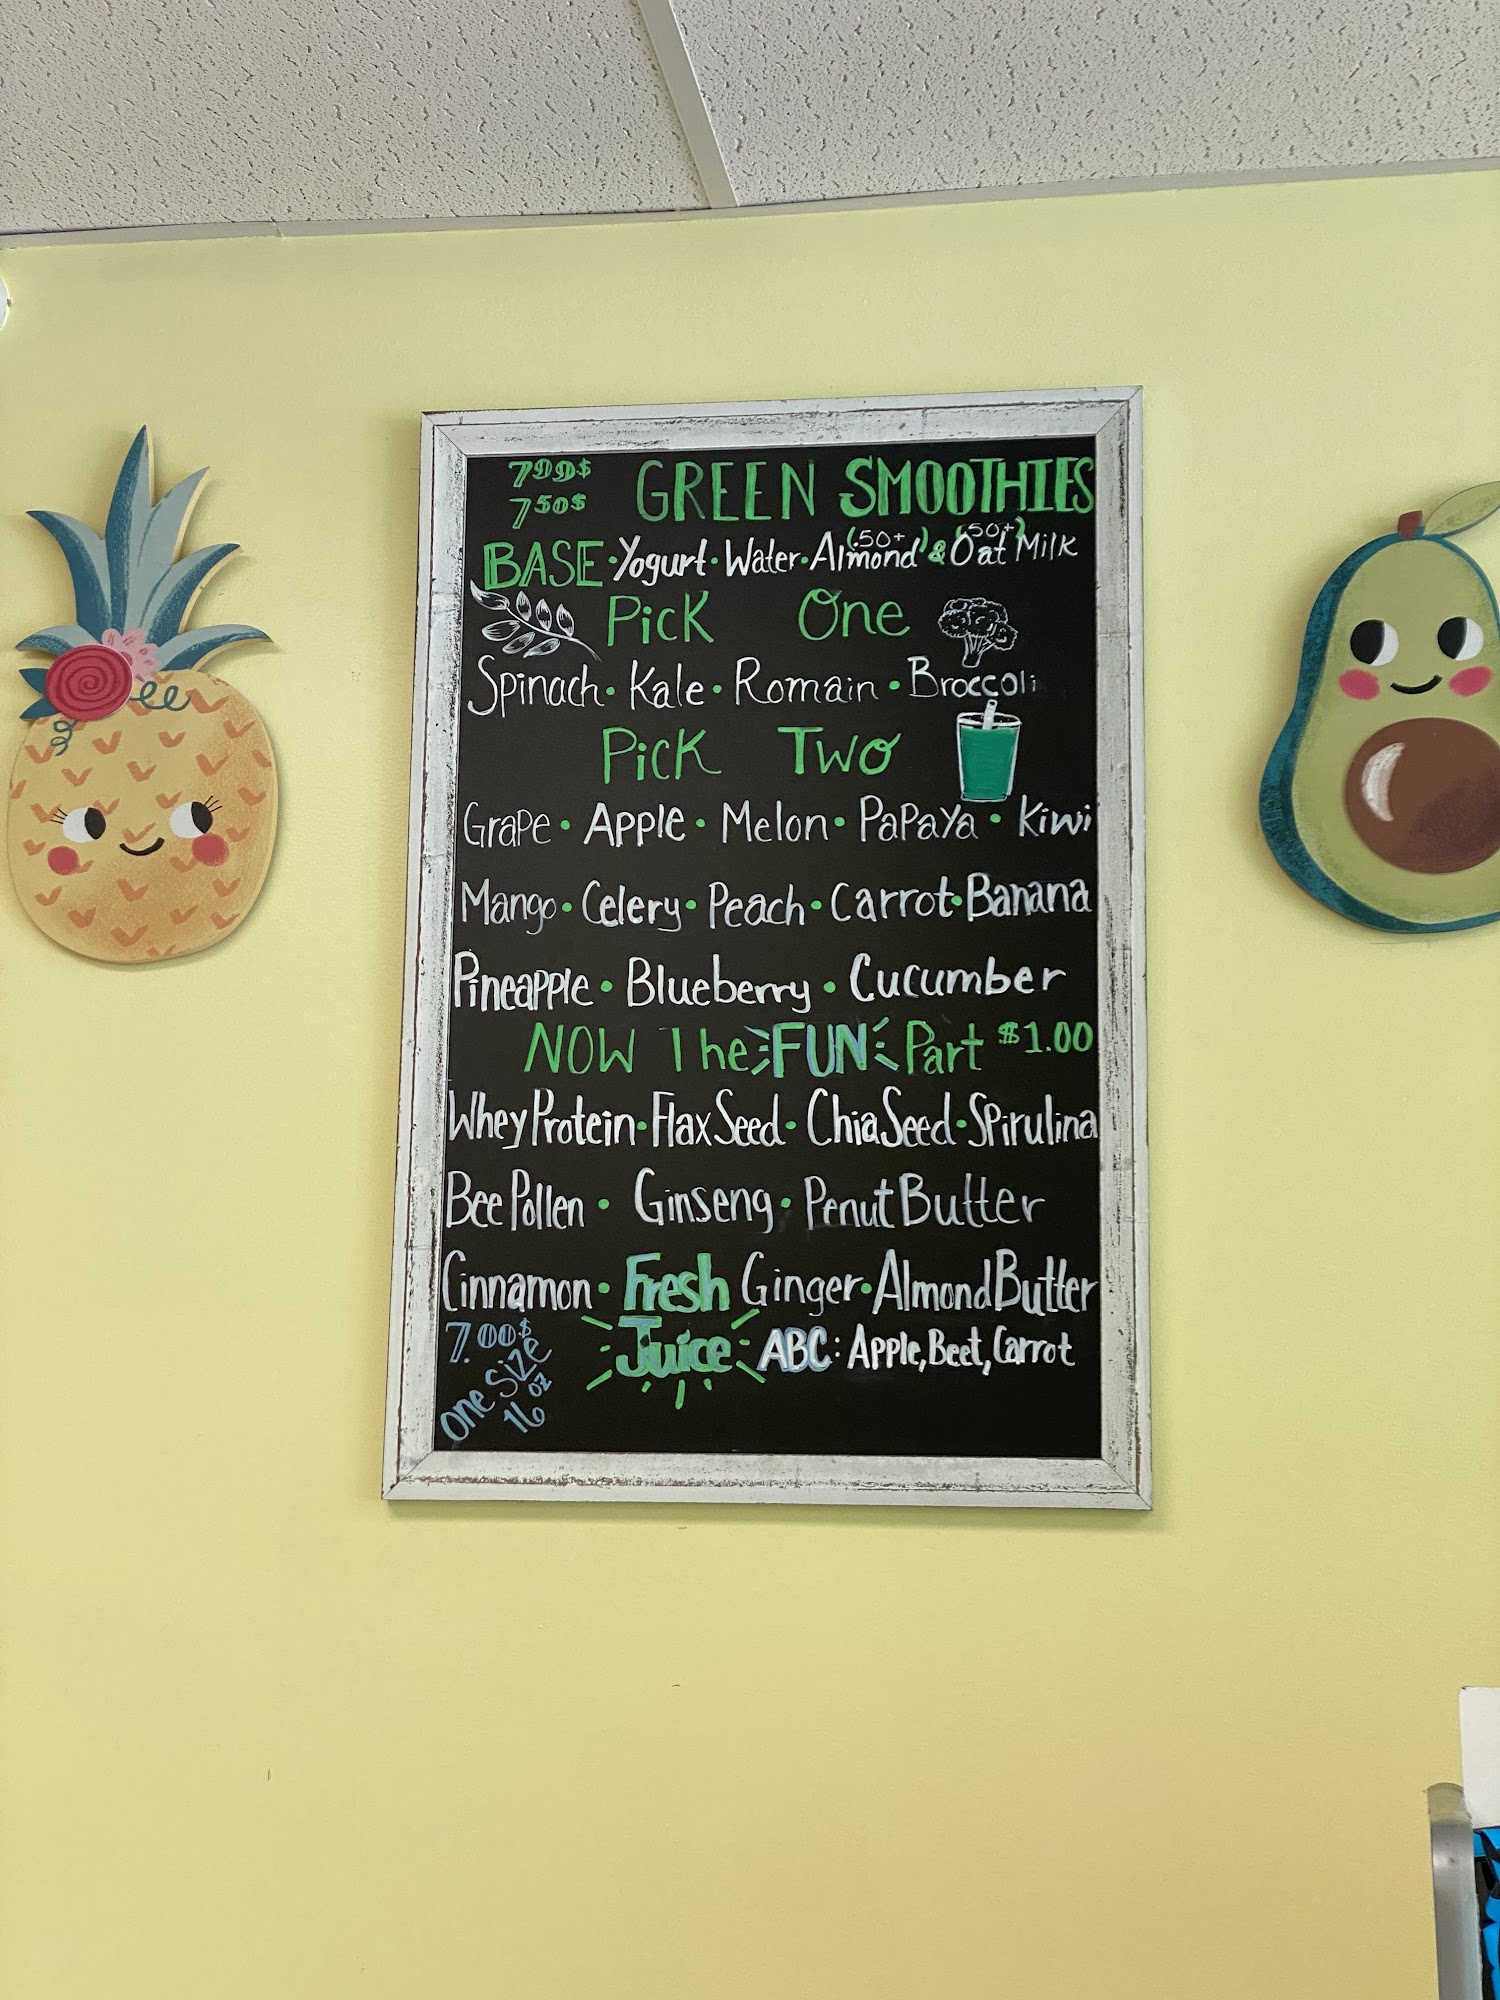 7.99$ GREEN SMOOTHIES
7.50$
(.50+) (.50+)
BASE · Yogurt · Water · Almond & Oat Milk
Pick One
Spinach · Kale · Romain · Broccoli
Pick Two
Grape · Apple · Melon · Papaya · Kiwi
Mango · Celery · Peach · Carrot · Banana
Pineapple · Blueberry · Cucumber
NOW The FUN Part $1.00
Whey Protein · Flax Seed · Chia Seed · Spirulina
Bee Pollen · Ginseng · Penut Butter
Cinnamon · Ginger · Almond Butter
Fresh Juice
ABC: Apple, Beet, Carrot
7.00$
One Size
16 oz